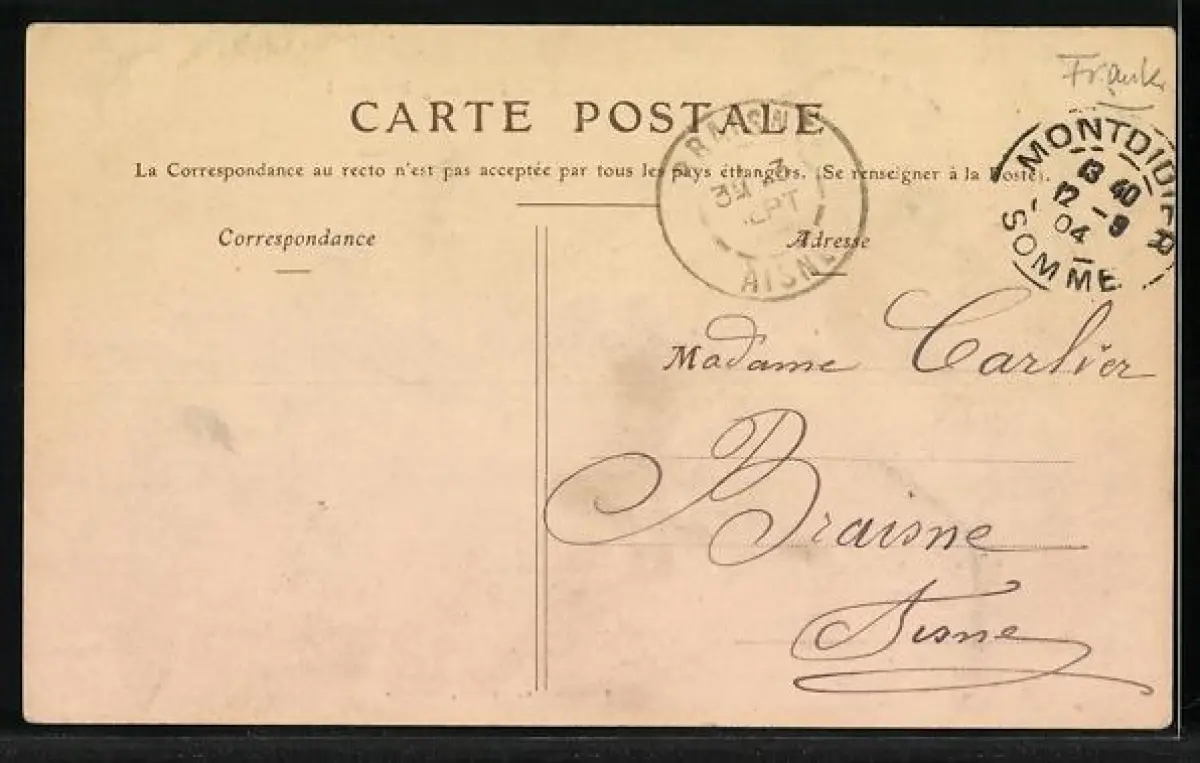 Frank
CARTE POSTALE
La Correspondance au recto n'est pas acceptée par tous les pays étrangers. (Se renseigner à la Poste).
MONTDIDIER
13 40
12 - 9
04
SOMME
BRAISNE
SEPT
AISNE
Correspondance
Adresse
Madame Carlier
Braisne
Aisne